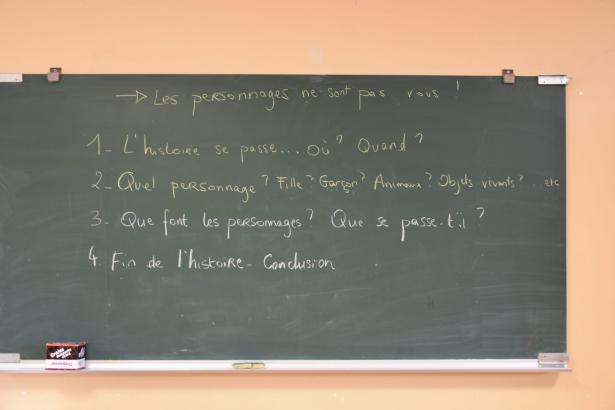 → Les personnages ne sont pas vous !
1- L'histoire se passe... Où? Quand?
2- Quel personnage? Fille? Garçon? Animaux? Objets vivants? ... etc
3- Que font les personnages? Que se passe-t-il?
4. Fin de l'histoire - Conclusion